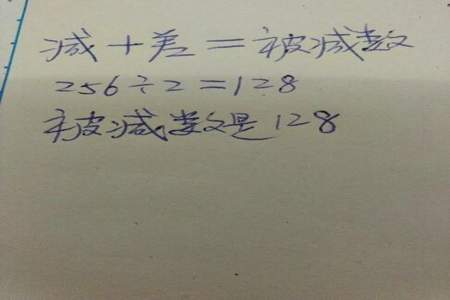 减+差=被减数
256÷2=128
被减数是128